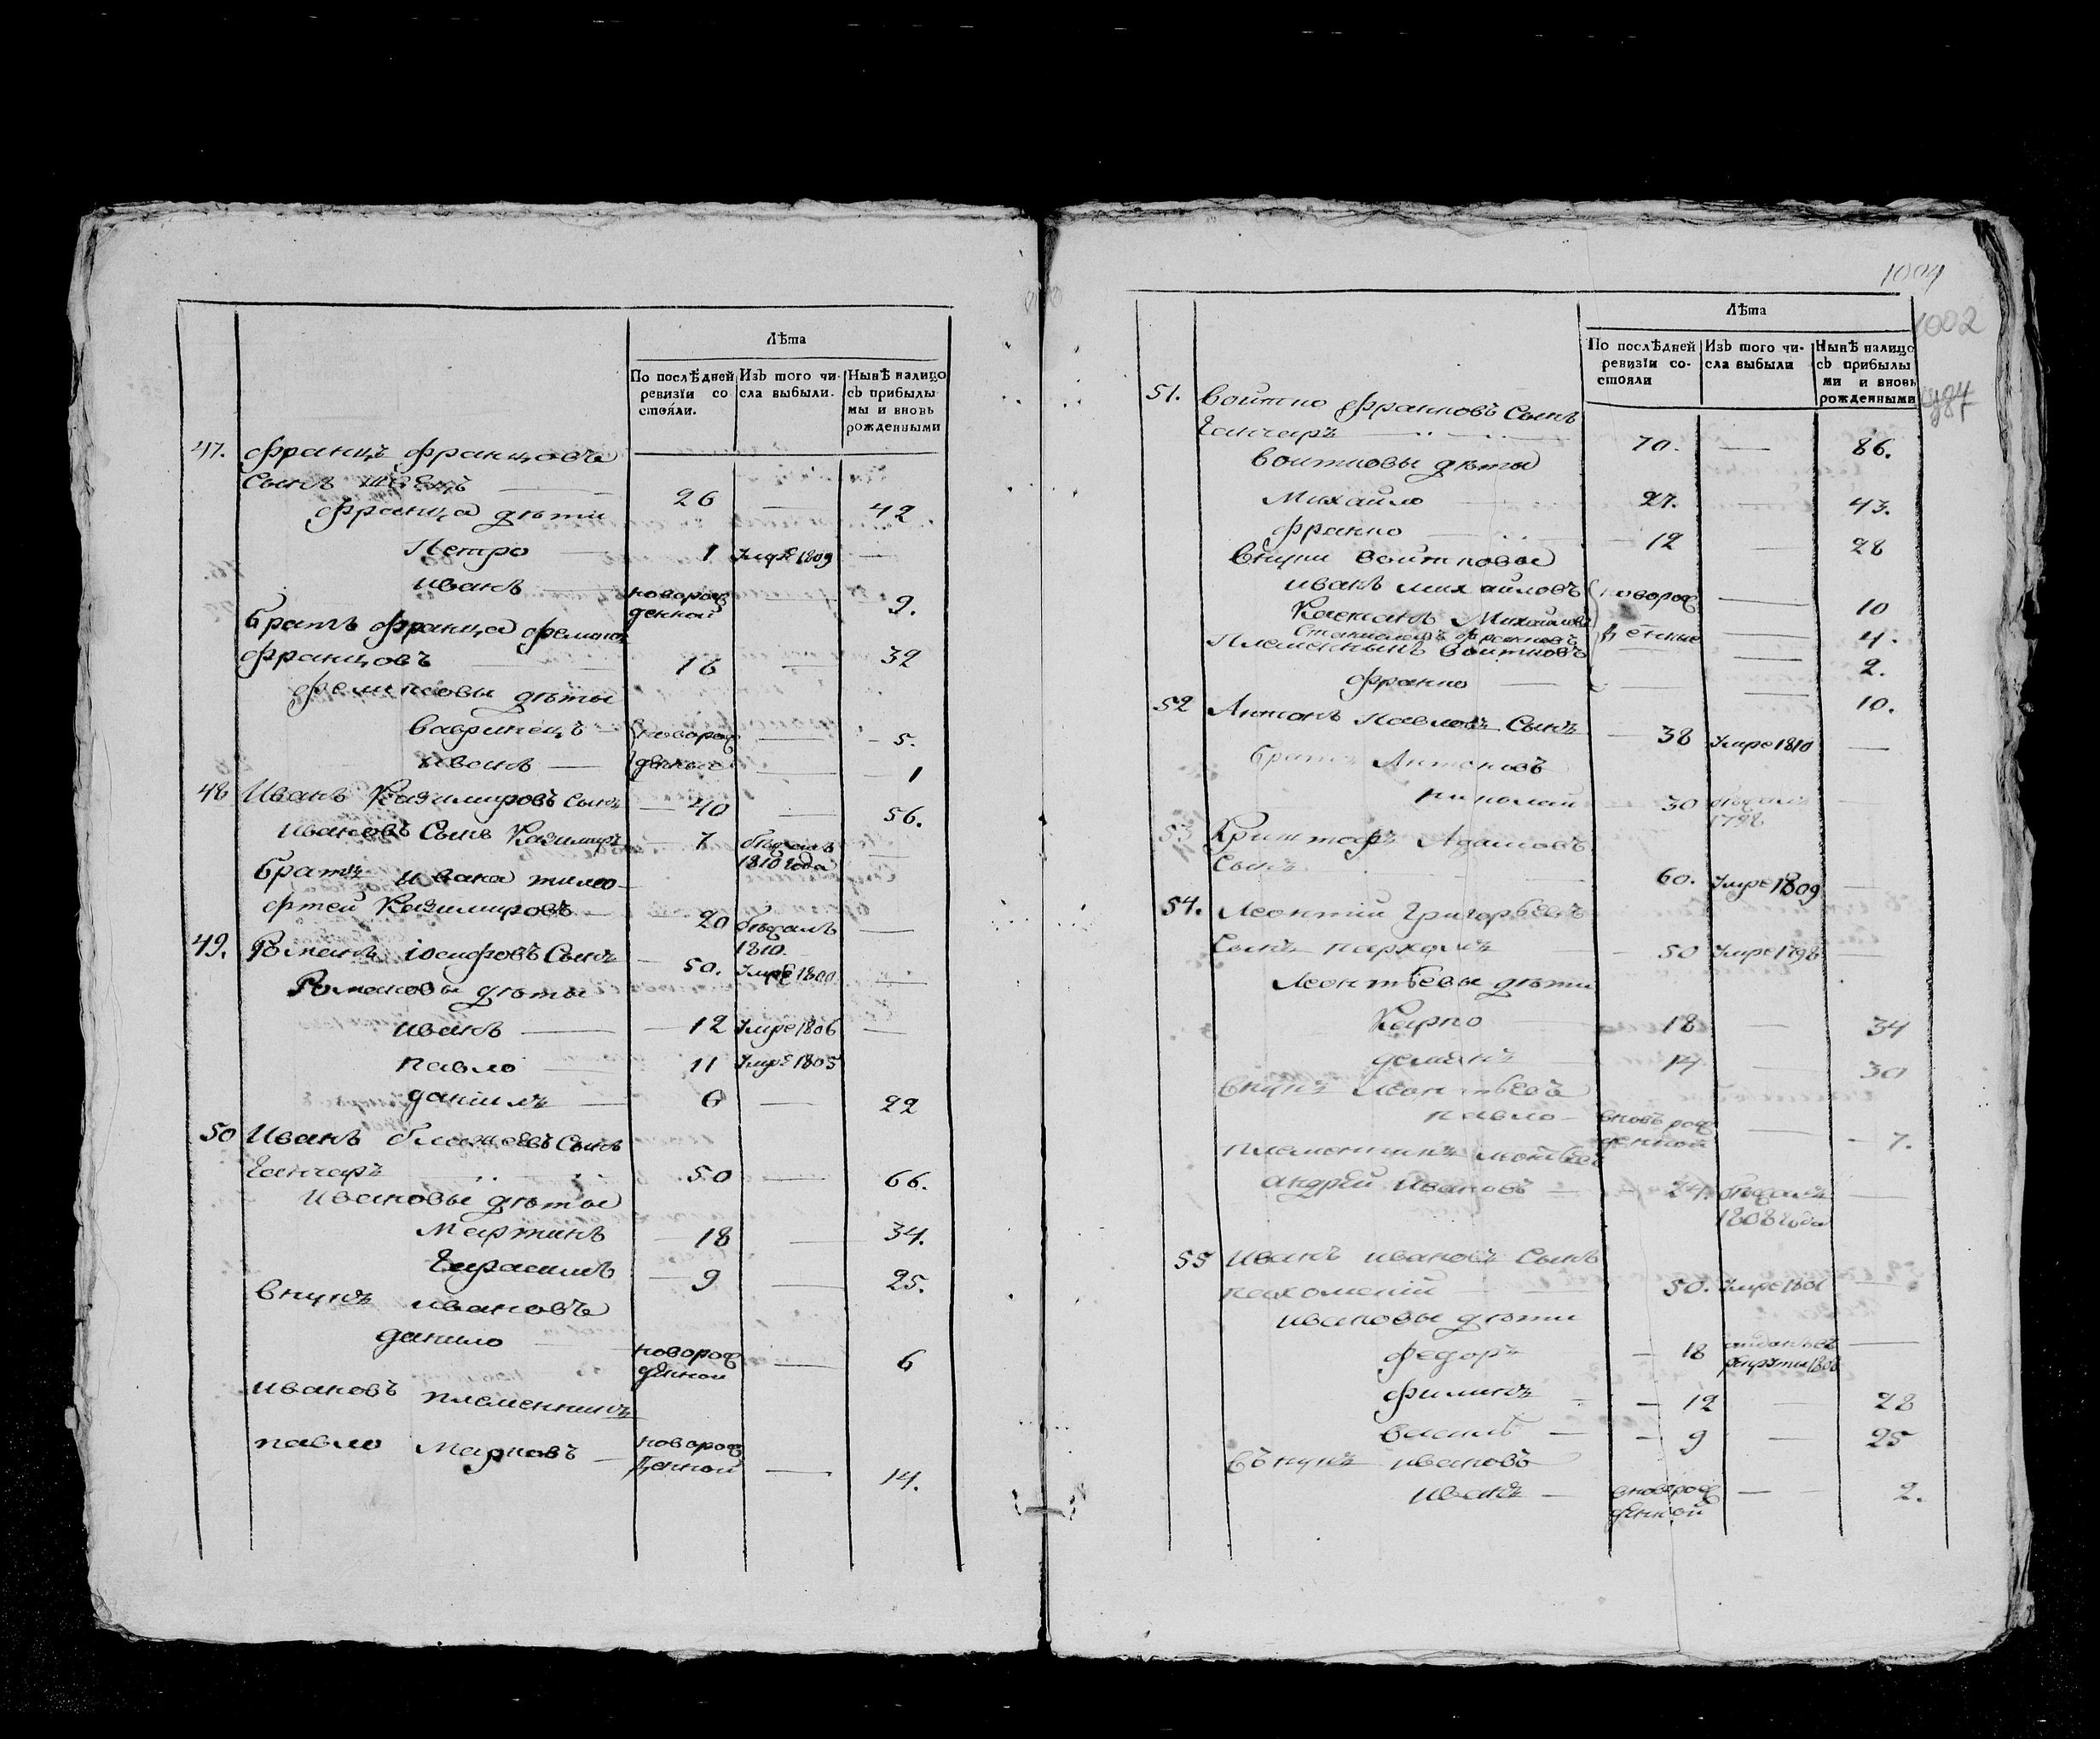 Лѣта
По послѣдней ревизіи со стояли.
Изъ того чи- сла выбыли.
Нынѣ налицо съ прибылы мы и вновь рожденными
47. Францъ Францовъ
Сынъ швецъ — 26 — 42
Франца дѣти
Петро — 1 Умре 1809 —
иванъ — новорож
денной — 9.
братъ Франца
Францовъ — 16 — 32
дѣты
вавринецъ — новорож — 5.
иванъ — денные — 1
48 Иванъ Казимировъ Сынъ — 40 — 56.
ивановъ Сынъ Казимиръ — 7 бѣжалъ —
1810 года
братъ ивана тимо-
фтей Казимировъ — 20 бѣжалъ —
1810.
49. Романъ іосифовъ Сынъ — 50. Умре 1800 —
Романовы дѣты
иванъ — 12 Умре 1806 —
павло — 11 Умре 1805
даніилъ — 6 — 22
50 Иванъ Сынъ
ганчаръ — 50 — 66.
Ивановы дѣты
Мартинъ — 18 — 34.
Герасимъ — 9 — 25.
внукъ ивановъ
данило — новорож
денной — 6
ивановъ племенникъ
павло Марковъ — новорож
денной — 14.
1004
1002
Лѣта
По послѣдней ревизіи со- стояли
Изъ того чи- сла выбыли
Нынѣ налицо съ прибылы ми и вновь рожденными
51. войтко Франковъ Сынъ
ганчаръ — 70. — 86.
войтковы дѣты
Михайло — 27. — 43.
Франко — 12 — 28
внуки войтковы
иванъ михайловъ новорож — 10
Михайловъ — 4.
Станиславъ Франковъ — 2.
Племенникъ войтковъ
Франко — 10.
52 Антонъ Павловъ Сынъ — 38 Умре 1810 —
братъ Антоновъ
николай — 30 бѣжалъ —
1798
53 Криштофъ Адамовъ
Сынъ — 60. Умре 1809 —
54. Леонтій Григорьевъ
Сынъ — 50 Умре 1798 —
Леонтьевы дѣти
Карпо — 18 — 34
демянъ — 14 — 30
внукъ Леонтьевъ
павло — вновь рож
денной — 7.
племенникъ
андрій ивановъ — 24. бѣжалъ —
1808 года
55 Иванъ ивановъ Сынъ
50. Умре 1801 —
ивановы дѣти
федоръ — 18 отданъ въ —
рекруты 1808
филипъ — 12 — 28
василь — 9 — 25
внукъ ивановъ
иванъ — вноворож
денной — 2.